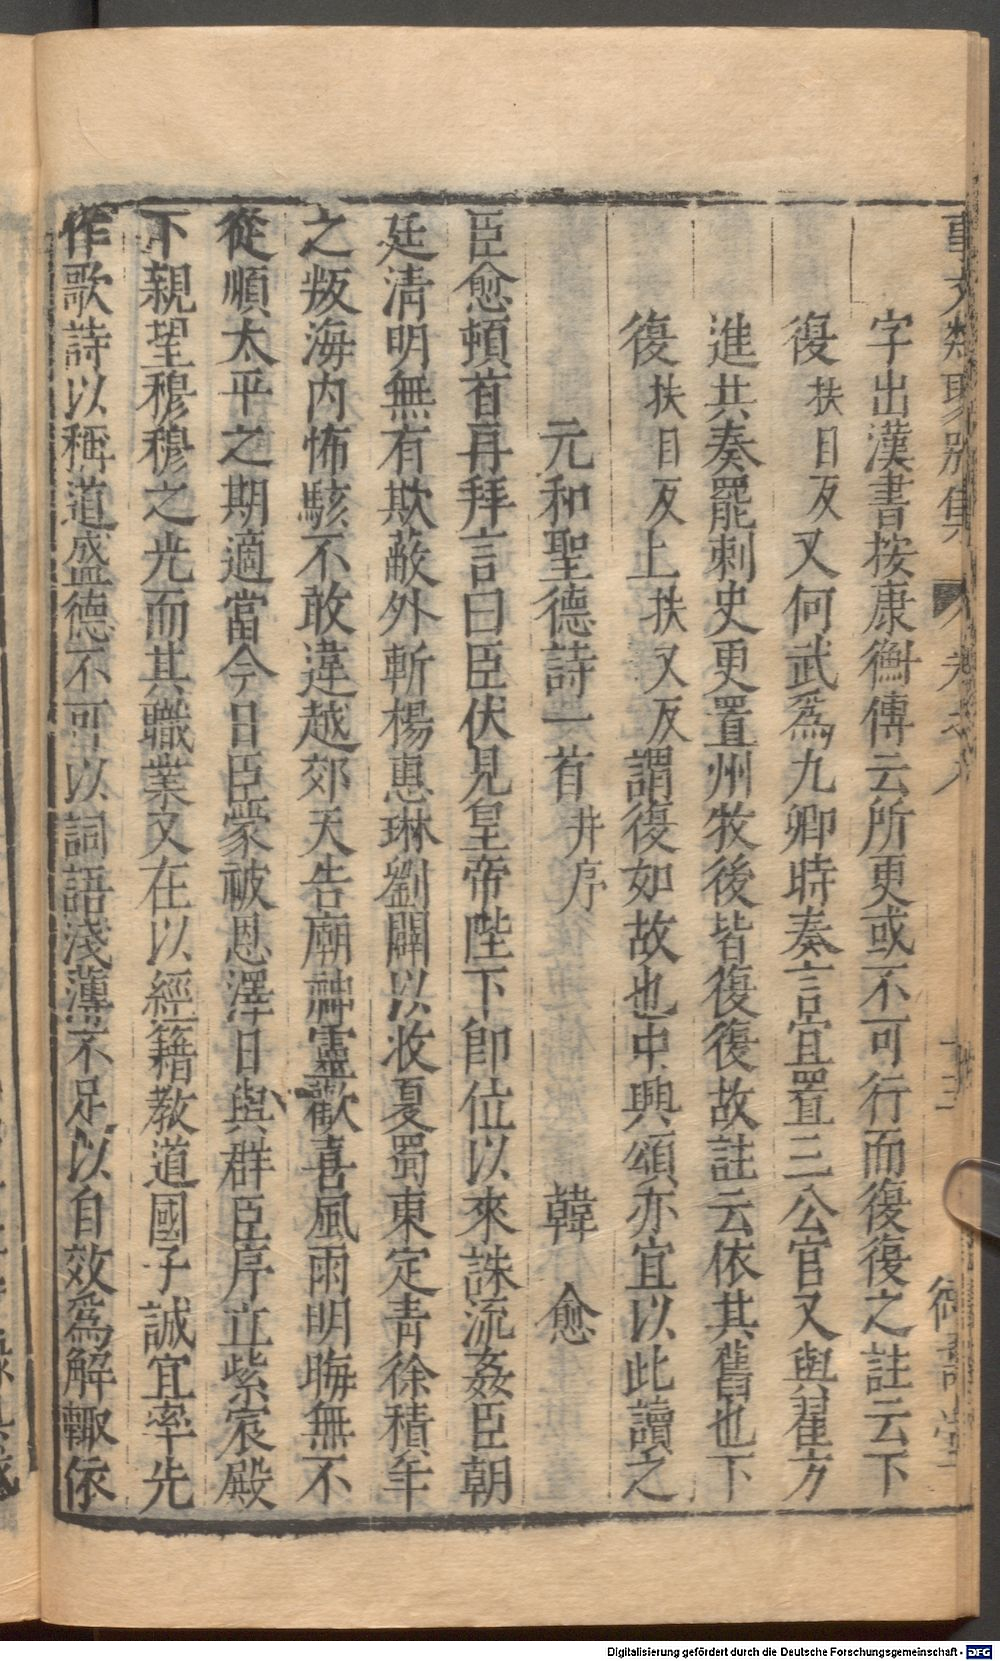 事文類聚別集 卷之八 十三 德壽堂
字出漢書按康衡傳云所更或不可行而復復之註云下
復扶目反又何武爲九卿時奏言宜置三公官又與翟方
進共奏罷刺史更置州牧後皆復復故註云依其舊也下
復扶目反上扶又反謂復如故也中興頌亦宜以此讀之
元和聖德詩一首并序 韓愈
臣愈頓首再拜言曰臣伏見皇帝陛下卽位以來誅流姦臣朝
廷清明無有欺蔽外斬楊惠琳劉闢以收夏蜀東定青徐積年
之叛海内怖駭不敢違越郊天告廟神靈歡喜風雨明晦無不
從順太平之期適當今日臣蒙被恩澤日與群臣序立紫宸殿
下親望穆穆之光而其職業又在以經籍教道國子誠宜率先
作歌詩以稱道盛德不可以詞語淺薄不足以自效爲解輙依
Digitalisierung gefördert durch die Deutsche Forschungsgemeinschaft - DFG